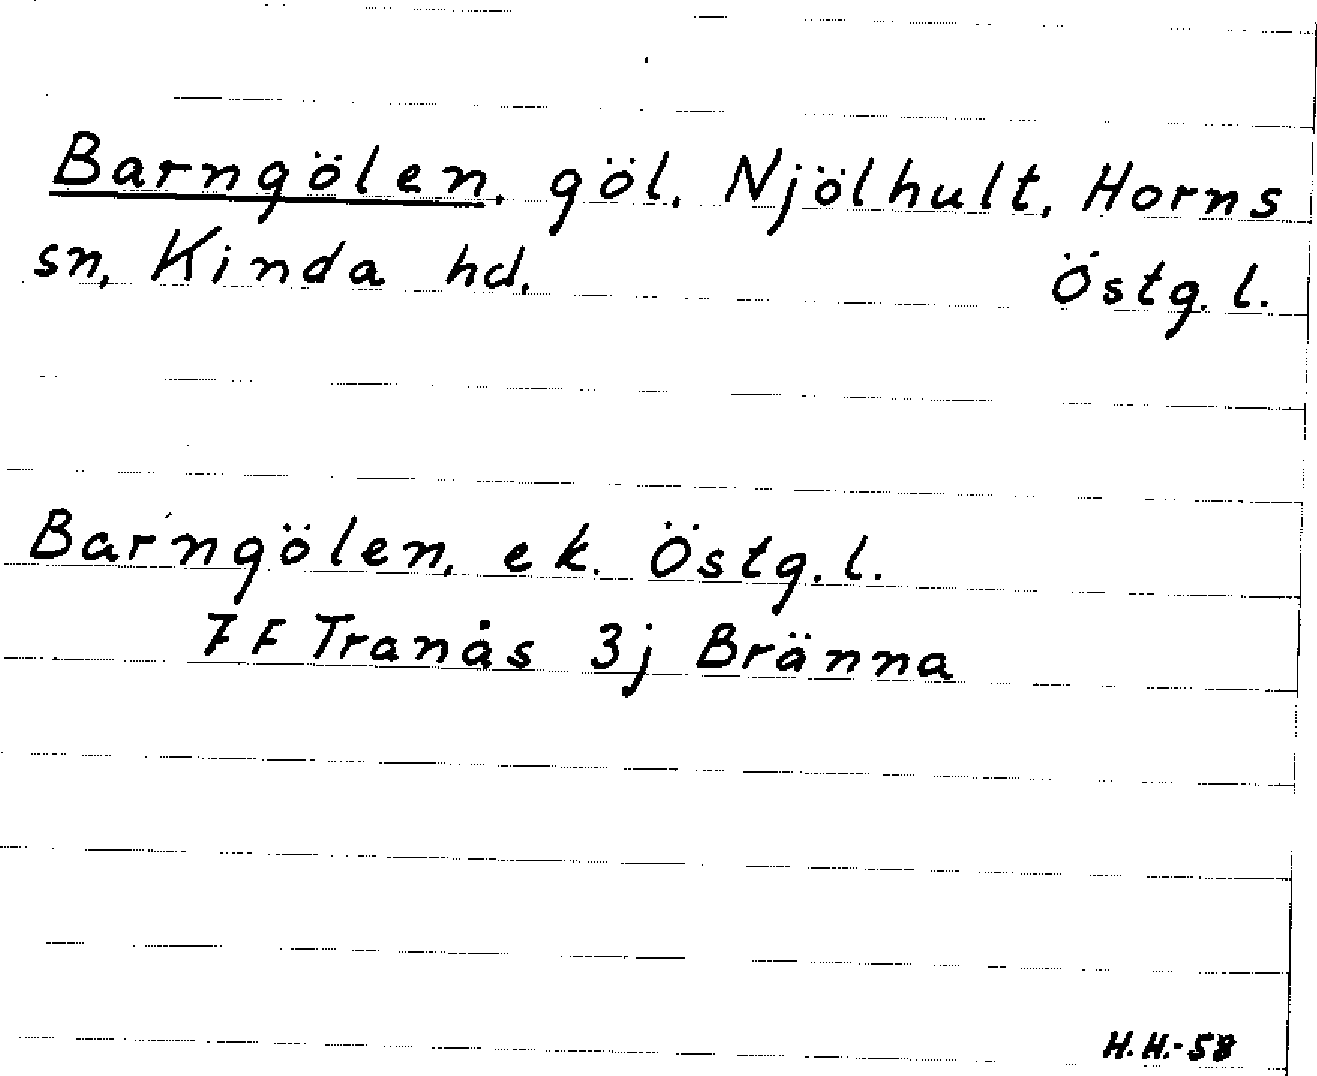 Barngölen, göl, Njölhult, Horns
sn, Kinda hd. Östg. l.
Barngölen, ek. Östg. l.
7 F Tranås 3j Bränna
H. H.-58